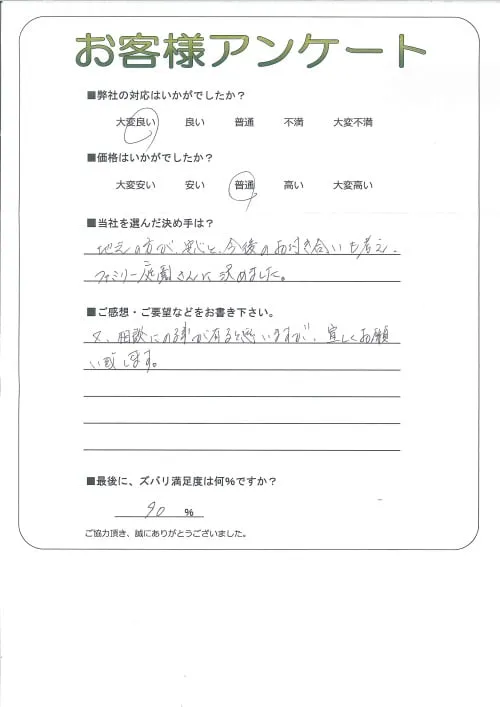 お客様アンケート
■弊社の対応はいかがでしたか?
大変良い 良い 普通 不満 大変不満
■価格はいかがでしたか?
大変安い 安い 普通 高い 大変高い
■当社を選んだ決め手は?
地元の方が、安心と、今後のお付き合いも考え、
ファミリー庭園さんに決めました。
■ご感想・ご要望などをお書き下さい。
又、相談にのる事が有ると思いますが、宜しくお願
い致します。
■最後に、ズバリ満足度は何%ですか?
90 %
ご協力頂き、誠にありがとうございました。